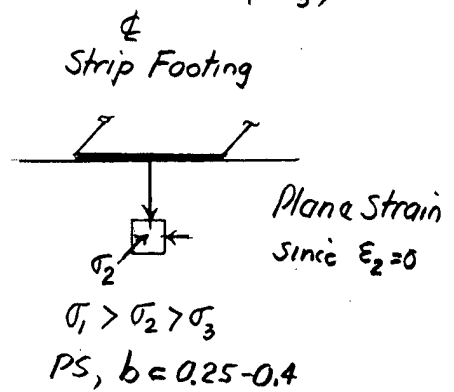 ℄
Strip Footing
Plane Strain
since ε₂=0
σ₂
σ₁ > σ₂ > σ₃
PS, b = 0.25-0.4